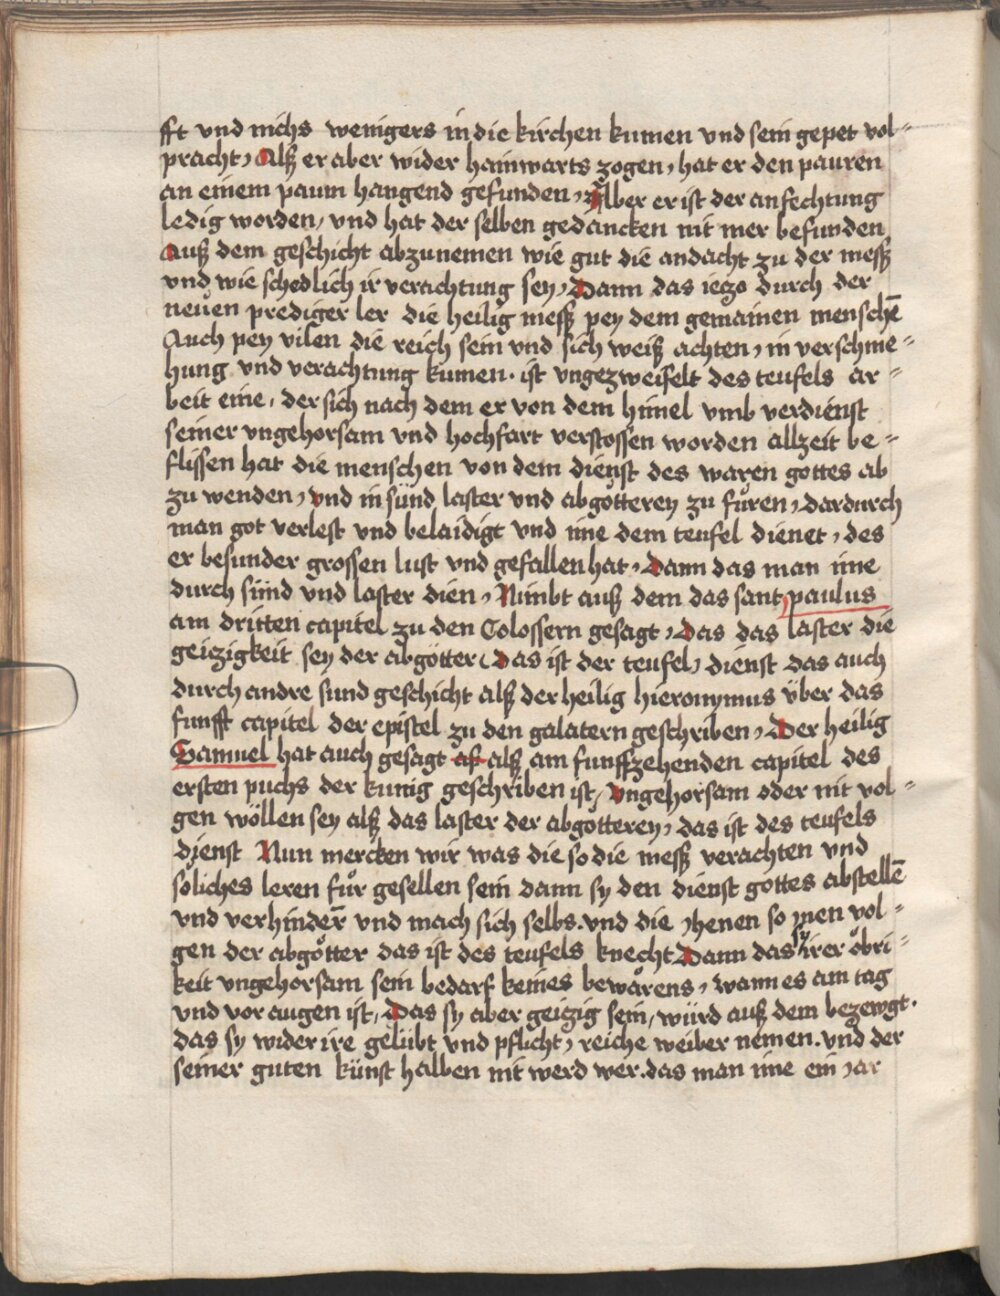 fft vnd nichs wenigers in die kirchen kumen vnd sein gepet vol=
pracht, Alß er aber wider hainwarts zogen, hat er den pauren
an einem paum hangend gefunden, Aber er ist der anfechtung
ledig worden, vnd hat der selben gedancken nit mer befunden
Auß dem geschicht abzunemen wie gut die andacht zu der mesß
vnd wie schedlich ir verachtung sey, Dann das ietzo durch der
neuen prediger ler die heilig mesß pey dem gemainen menschē
Auch pey vilen die reich sein vnd sich weiß achten, in verschme=
hung vnd verachtung kumen. ist vngezweifelt des teufels ar=
beit eine, der sich nach dem er von dem himel vmb verdienst
seiner vngehorsam vnd hochfart verstossen worden allzeit be=
flissen hat die menschen von dem dienst des waren gottes ab
zu wenden, vnd in sünd laster vnd abgötterey zu fůren, dardurch
man got verlest vnd belaidigt vnd ime dem teufel dienet, des
er besunder grossen lust vnd gefallen hat, Dann das man ime
durch sünd vnd laster dien, Nimbt auß dem das sant paulus
am dritten capitel zu den Colossern gesagt, Das das laster die
geizigkeit sey der abgötter (das ist der teufel) dienst das auch
durch andre sund geschicht alß der heilig hieronymus über das
funfft capitel der epistel zu den galatern geschriben, Der heilig
Samuel hat auch gesagt aß alß am funffzehenden capitel des
ersten puchs der kunig geschriben ist, Vngehorsam oder nit vol=
gen wöllen sey alß das laster der abgötterey, das ist des teufels
dienst Nun mercken wir was die so die mesß verachten vnd
söliches leren fůr gesellen sein dann sy den dienst gottes abstellē
vnd verhinder̄ vnd mach sich selbs. vnd die jhenen so jnen vol=
gen der abgötter das ist des teufels knecht Dann das sy irer öbri=
keit vngehorsam sein bedarf keines bewärens, wann es am tag
vnd vor augen ist, Das sy aber geizig sein, würd auß dem bezewgt.
das sy wider ire gelübt vnd pflicht, reiche weiber nemen. vnd der
seiner guten künst halben nit werd wer. das man ime ein jar